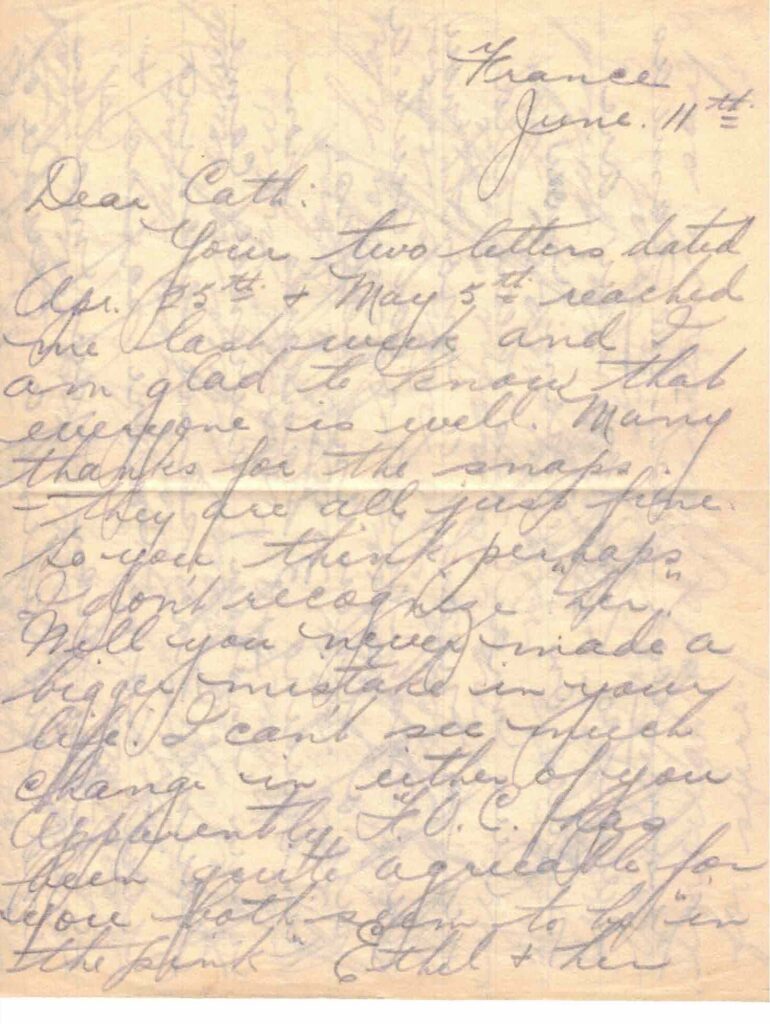 France
June. 11th
Dear Cath:
Your two letters dated
Apr. 25th & May 5th reached
me last week and I
am glad to know that
everyone is well. Many
thanks for the snaps.
- they are all just fine.
So you think perhaps
I don't recognize "her"
Well you never made a
bigger mistake in your
life. I can't see much
change in either of you
Apparently F.O.C. has
been quite agreeable for
you both seem to be "in
the pink" Ethel & her